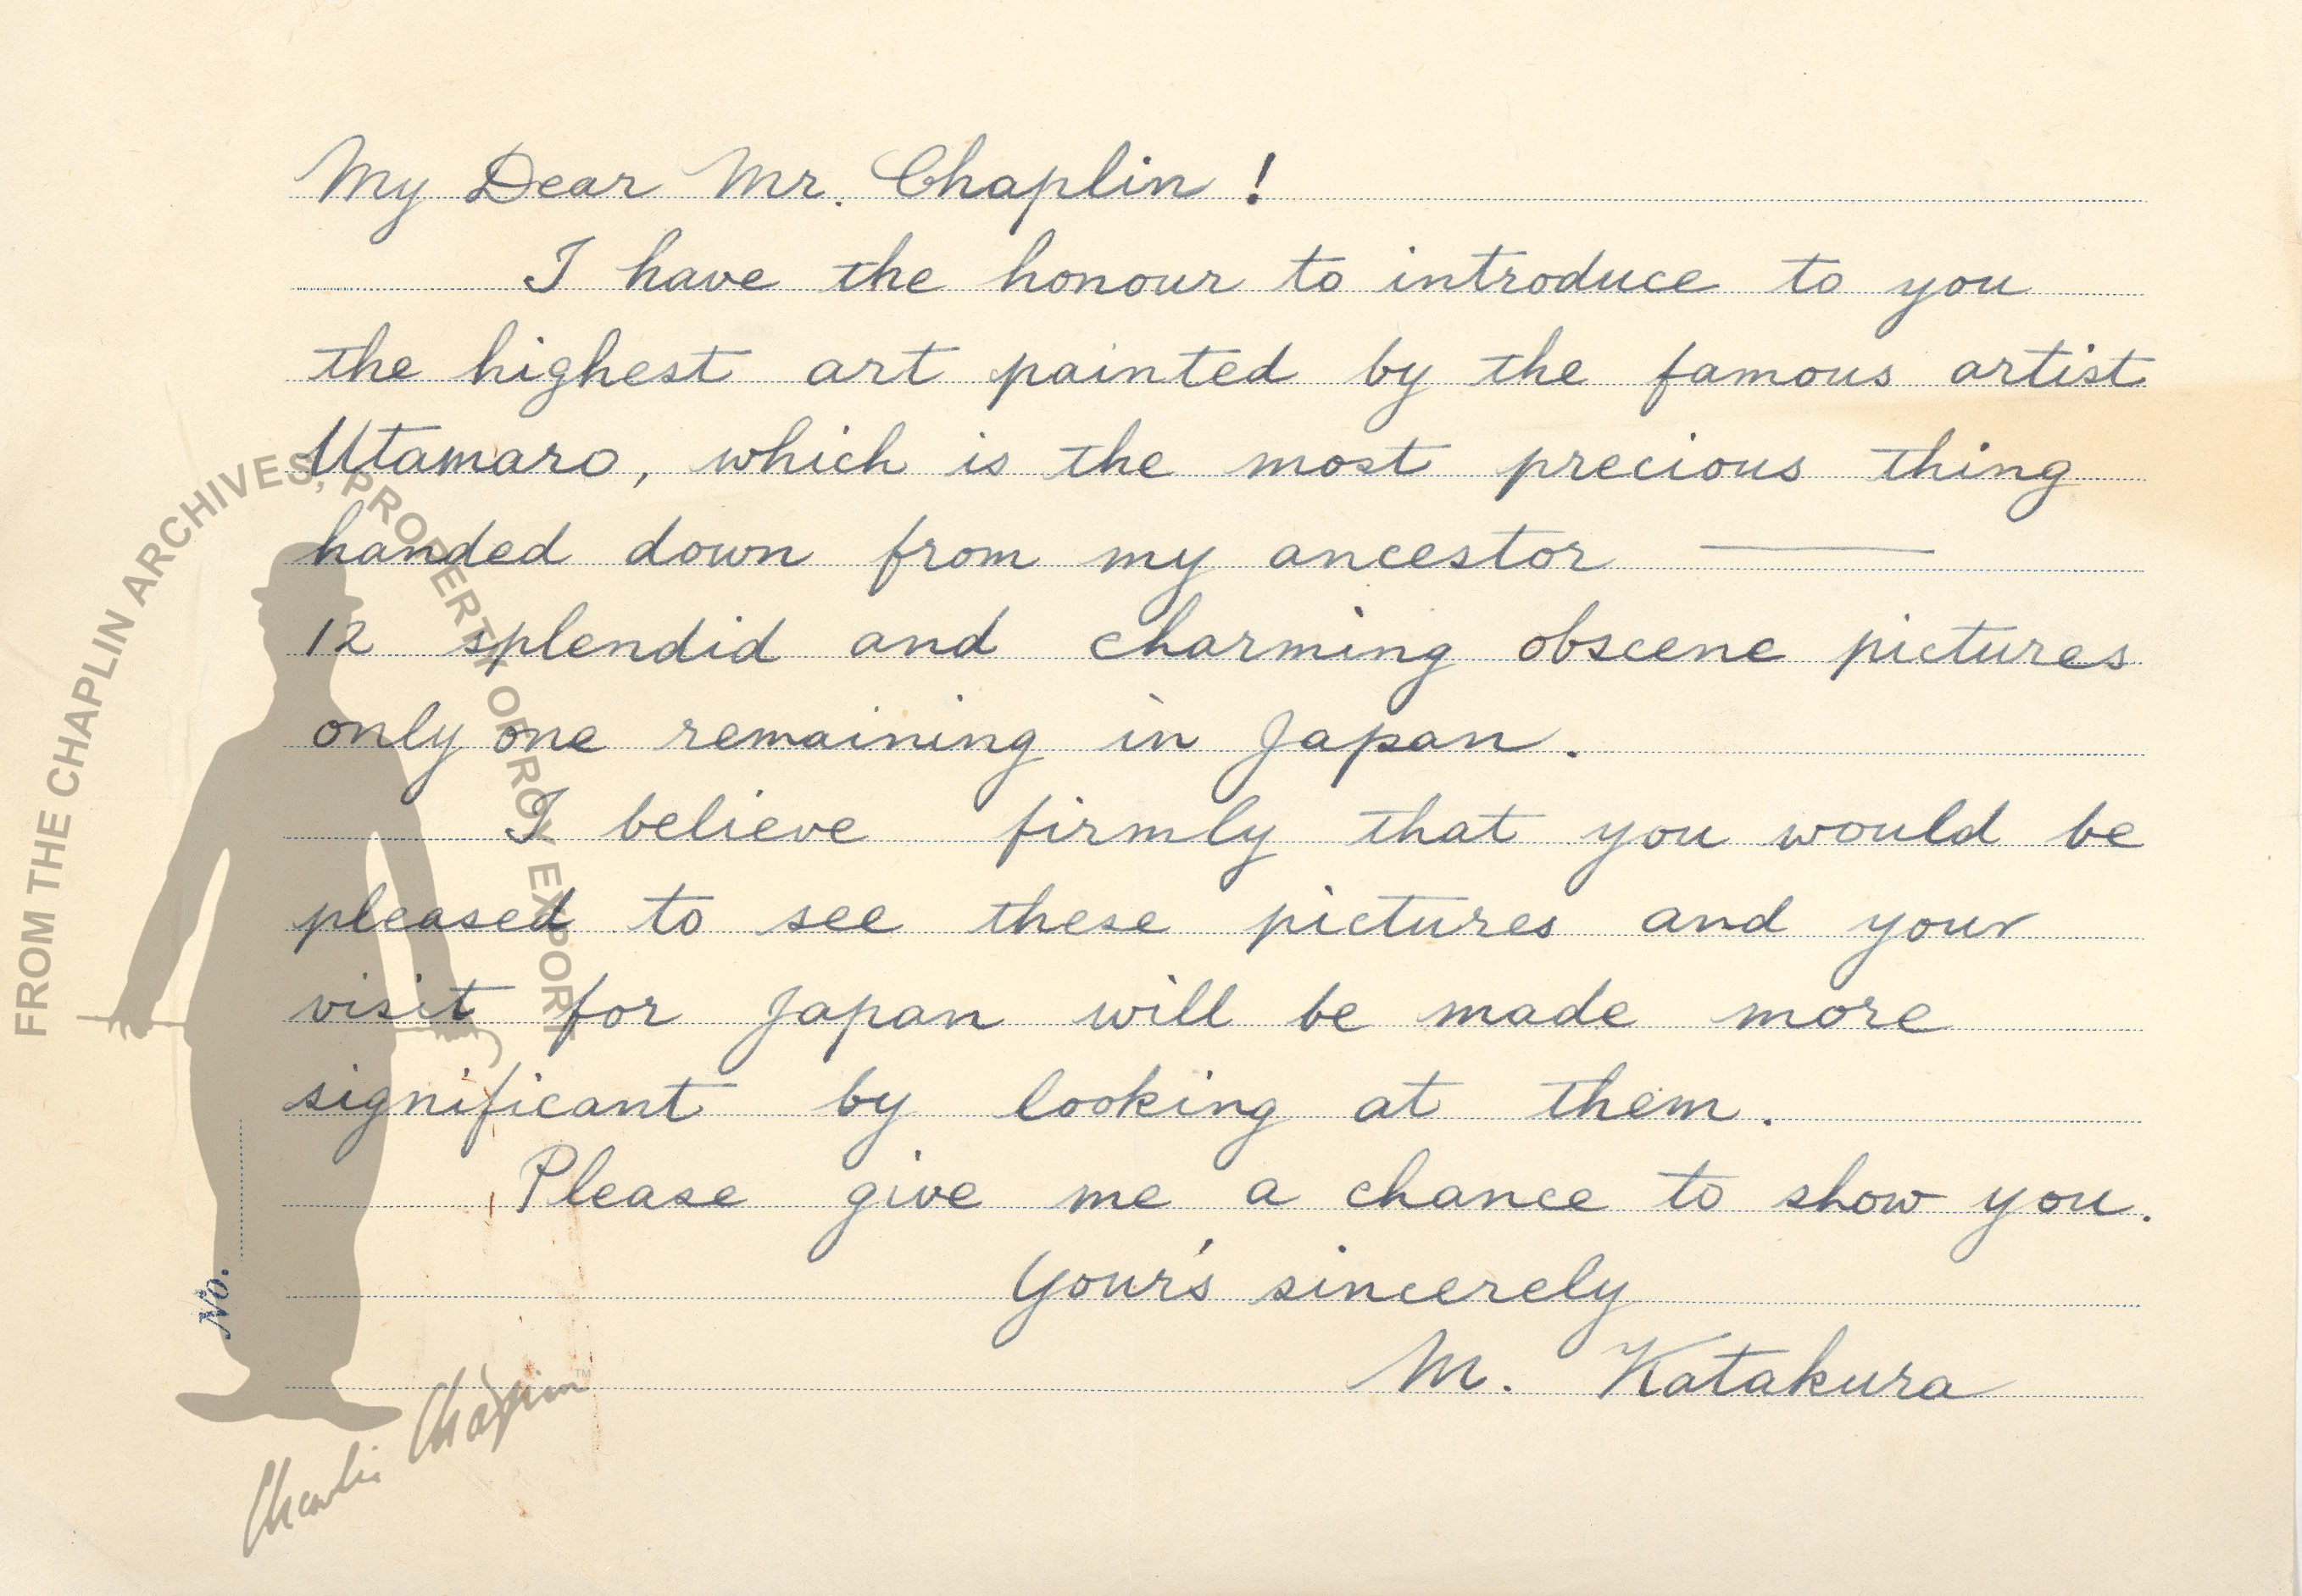 My Dear Mr. Chaplin !
I have the honour to introduce to you
the highest art painted by the famous artist
Utamaro, which is the most precious thing
handed down from my ancestor ———
12 splendid and charming obscene pictures
only one remaining in Japan.
I believe firmly that you would be
pleased to see these pictures and your
visit for Japan will be made more
significant by looking at them.
Please give me a chance to show you.
Your's sincerely
M. Katakura
No.
FROM THE CHAPLIN ARCHIVES, PROPERTY OF ROY EXPORT
Charlie Chaplin™